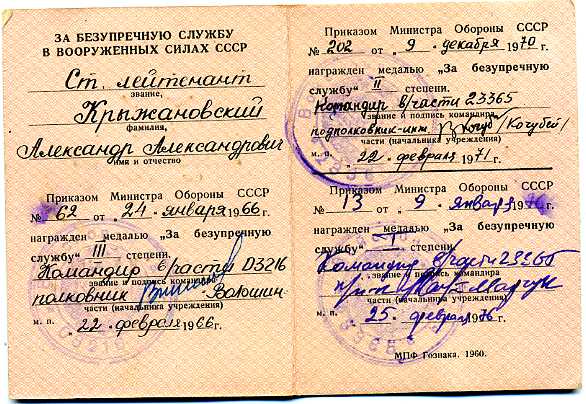 ЗА БЕЗУПРЕЧНУЮ СЛУЖБУ
В ВООРУЖЕННЫХ СИЛАХ СССР
Ст. лейтенант
звание,
Крыжановский
фамилия,
Александр Александрович
имя и отчество
Приказом Министра Обороны СССР
№ 62 от „ 24 „ января 1966 г.
награжден медалью „За безупречную
службу“ III степени.
Командир в/части D3216
звание и подпись командира
полковник Волошин
части (начальника учреждения)
м. п. „ 22 „ февраля 1966 г.
Приказом Министра Обороны СССР
№ 202 от „ 9 „ декабря 1970 г.
награжден медалью „За безупречную
службу“ II степени.
Командир в/части 23365
звание и подпись командира
подполковник-инж. /Когубей/
части (начальника учреждения)
м. п. „ 22 „ февраля 1971 г.
Приказом Министра Обороны СССР
№ 13 от „ 9 „ января 1976 г.
награжден медалью „За безупречную
службу“ I степени.
Командир в/части 23365
звание и подпись командира
п/п-к
части (начальника учреждения)
м. п. „ 25 „ февраля 1976 г.
МПФ Гознака. 1960.